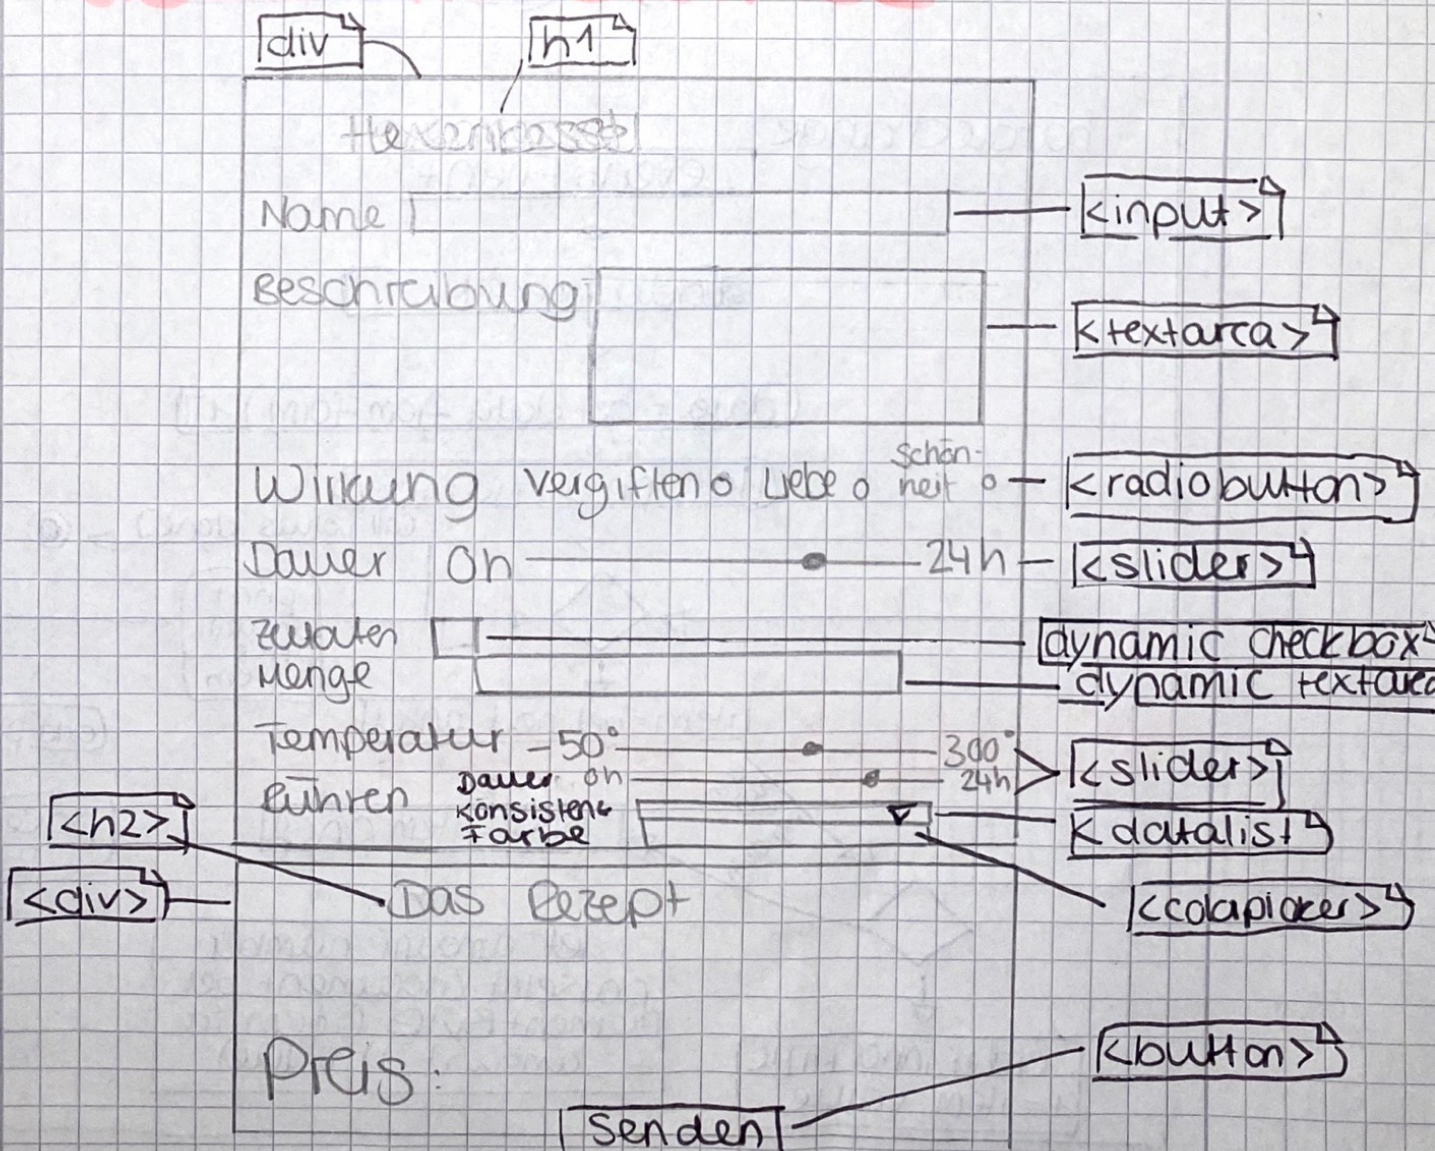 div
h1
Hexenkessel
Name
<input>
Beschreibung
<textarea>
Wirkung vergiften Liebe Schön-
heit
<radiobutton>
Dauer 0h 24h
<slider>
Zutaten
dynamic checkbox
Menge
dynamic textarea
Temperatur -50° 300°
<slider>
Rühren Dauer 0h 24h
Konsistenz
<datalist>
Farbe
<h2>
<div>
Das Rezept
Preis:
<button>
Senden